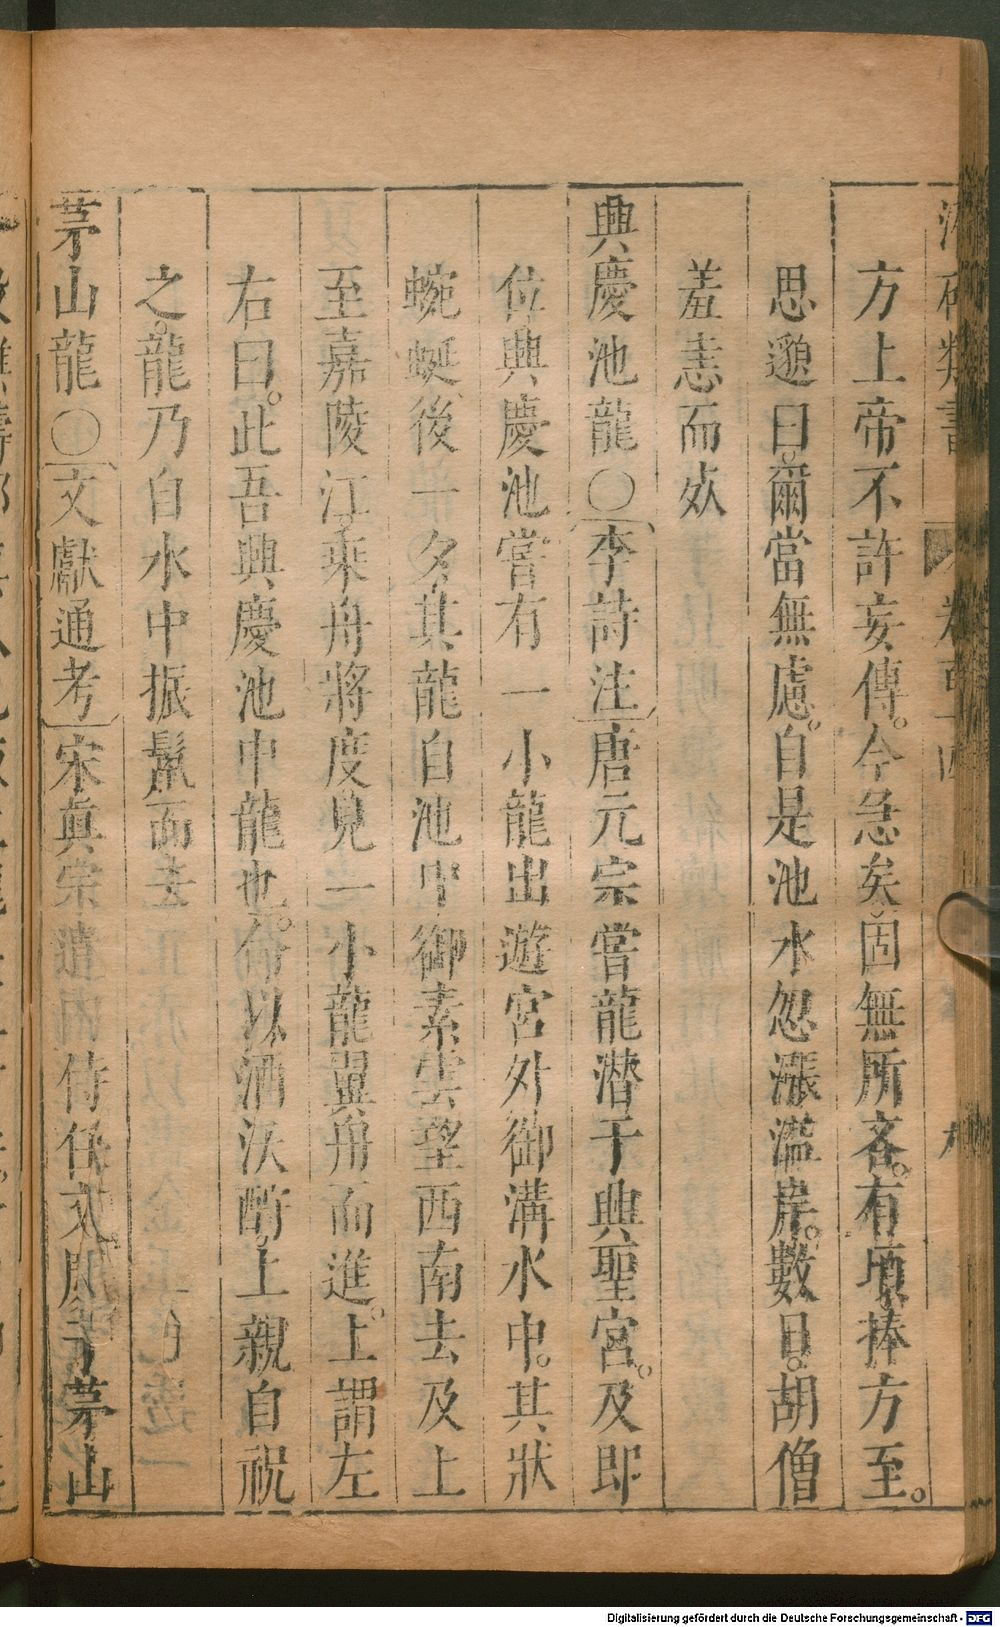 方上帝不許妄傳。今急矣固無所吝。有頃捧方至。
思邈曰。爾當無慮。自是池水忽漲濫岸。數日。胡僧
羞恚而死
興慶池龍〇李詩注唐元宗嘗龍潛于興聖宮。及即
位興慶池嘗有一小龍出遊宮外御溝水中。其狀
蜿蜒後一夕其龍自池中御素雲望西南去及上
至嘉陵江。乘舟將度見一小龍翼舟而進。上謂左
右曰。此吾興慶池中龍也。命以酒沃酹。上親自祝
之。龍乃自水中振鬣而去
茅山龍〇文獻通考宋眞宗遣内侍任文慶于茅山
Digitalisierung gefördert durch die Deutsche Forschungsgemeinschaft - DFG